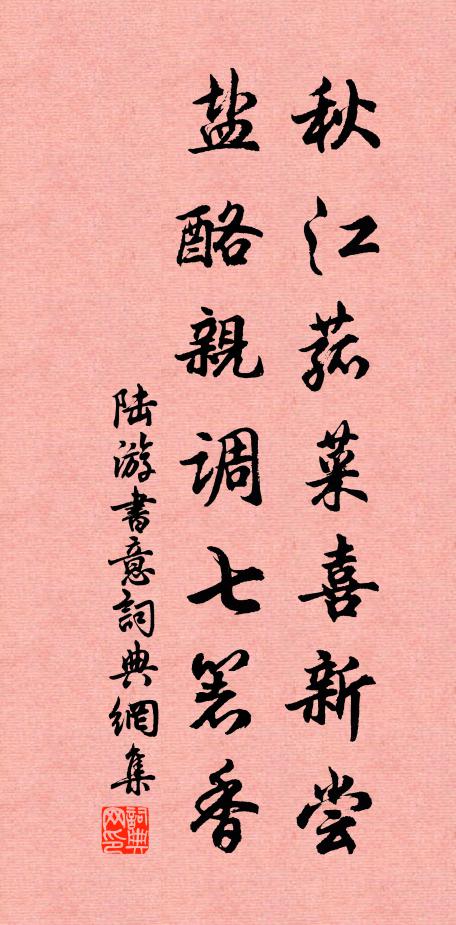 秋江菰菜喜新尝
盐酪親调七箸香
陆游書意詞典網集
詞典网印